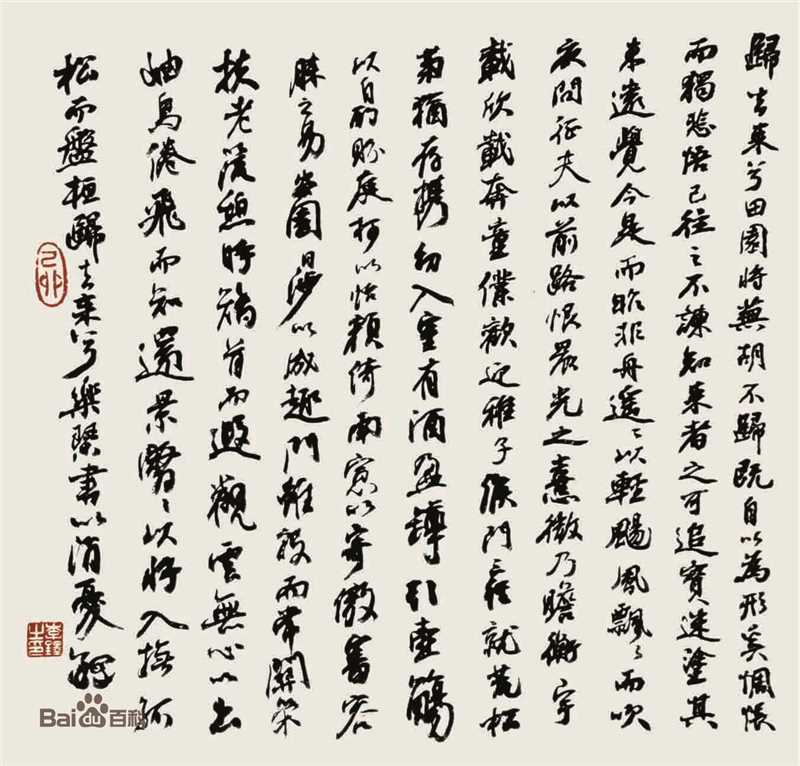 歸去来兮田園將蕪胡不歸既自以為形奚惆悵
而獨悲悟已往之不諫知来者之可追實迷塗其
未遠覺今是而昨非舟遥〻以輕颺風飄〻而吹
衣問征夫以前路恨晨光之熹微乃瞻衡宇
載欣載奔童僕歡迎稚子候門三徑就荒松
菊猶存携幼入室有酒盈罇引壺觴
以自酌眄庭柯以怡顏倚南窓以寄傲審容
膝之易安園日涉以成趣門雖設而常關策
扶老流憩時矯首而遐觀雲無心以出
岫鳥倦飛而知還景翳〻以將入撫孤
松而盤桓歸去来兮樂琴書以消憂
Baidu百科